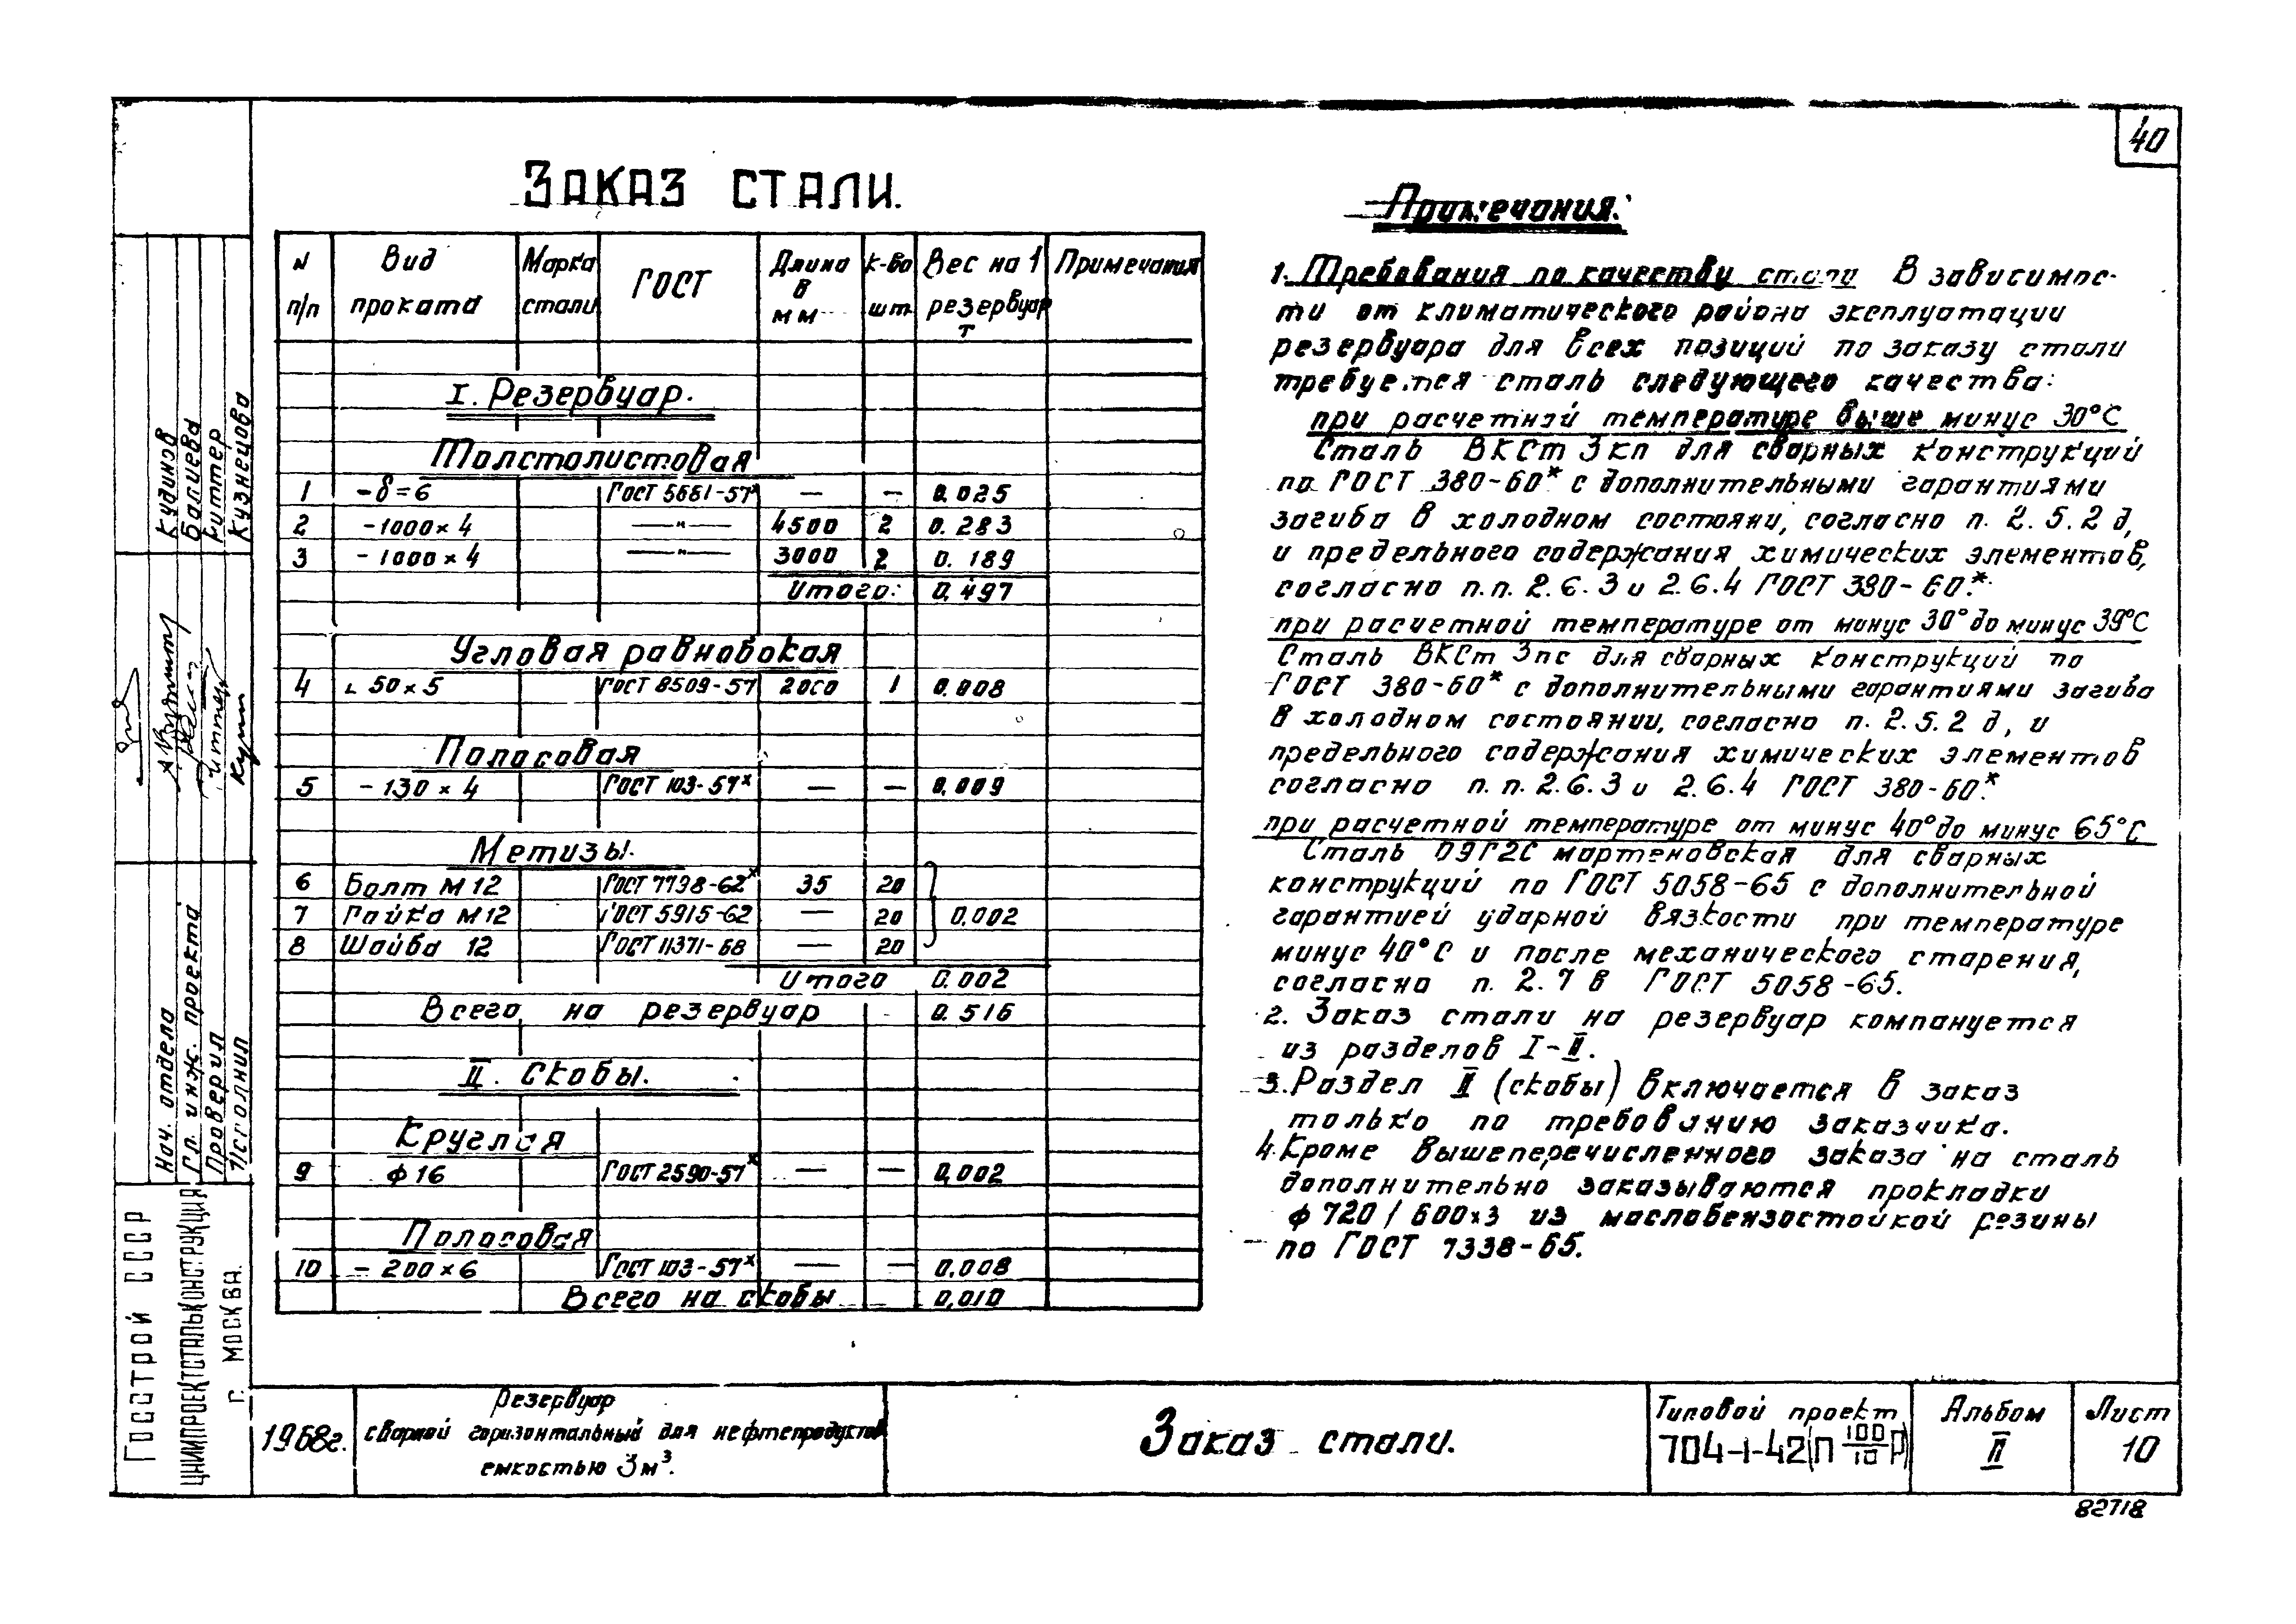 40
Заказ стали.
N п/п | Вид проката | Марка стали | ГОСТ | Длина в мм | к-во шт | Вес на 1 резервуар т | Примечания
I. Резервуар.
Толстолистовая
1 | -δ=6 | ГОСТ 5681-57* | — | — | 0.025
2 | -1000×4 | —"— | 4500 | 2 | 0.283
3 | -1000×4 | —"— | 3000 | 2 | 0.189
Итого: 0.497
Угловая равнобокая
4 | ∟50×5 | ГОСТ 8509-57 | 2000 | 1 | 0.008
Полосовая
5 | -130×4 | ГОСТ 103-57* | — | — | 0.009
Метизы.
6 | Болт М12 | ГОСТ 7798-62* | 35 | 20
7 | Гайка М12 | ГОСТ 5915-62 | — | 20 | 0.002
8 | Шайба 12 | ГОСТ 11371-68 | — | 20
Итого 0.002
Всего на резервуар 0.516
II. Скобы.
Круглая
9 | ф16 | ГОСТ 2590-57* | — | — | 0,002
Полосовая
10 | -200×6 | ГОСТ 103-57* | — | — | 0.008
Всего на скобы 0,010
Примечания:
1. Требования по качеству стали В зависимос-
ти от климатического района эксплуатации
резервуара для всех позиций по заказу стали
требуется сталь следующего качества:
при расчетной температуре выше минус 30°С
Сталь ВКСт 3кп для сварных конструкций
по ГОСТ 380-60* с дополнительными гарантиями
загиба в холодном состояни, согласно п. 2.5.2 д,
и предельного содержания химических элементов,
согласно п.п. 2.6.3 и 2.6.4 ГОСТ 380-60*.
при расчетной температуре от минус 30° до минус 39°С
Сталь ВКСт 3пс для сварных конструкций по
ГОСТ 380-60* с дополнительными гарантиями загиба
в холодном состоянии, согласно п. 2.5.2 д, и
предельного содержания химических элементов
согласно п.п. 2.6.3 и 2.6.4 ГОСТ 380-60*.
при расчетной температуре от минус 40° до минус 65°С
Сталь 09Г2С мартеновская для сварных
конструкций по ГОСТ 5058-65 с дополнительной
гарантией ударной вязкости при температуре
минус 40°С и после механического старения,
согласно п. 2.7 в ГОСТ 5058-65.
2. Заказ стали на резервуар компануется
из разделов I-II.
3. Раздел II (скобы) включается в заказ
только по требованию заказчика.
4. Кроме вышеперечисленного заказа на сталь
дополнительно заказываются прокладки
ф 720/600×3 из маслобензостойкой резины
по ГОСТ 7338-65.
Кудинов
Балиева
Риттер
Кузнецова
Нач. отдела
Гл. инж. проекта
Проверил
Исполнил
Госстрой СССР
ЦНИИПРОЕКТСТАЛЬКОНСТРУКЦИЯ
г. Москва.
1968г.
Резервуар
сварной горизонтальный для нефтепродуктов
емкостью 3м³.
Заказ стали.
Типовой проект
704-1-42(П 100/10 Р)
Альбом
II
Лист
10
82718